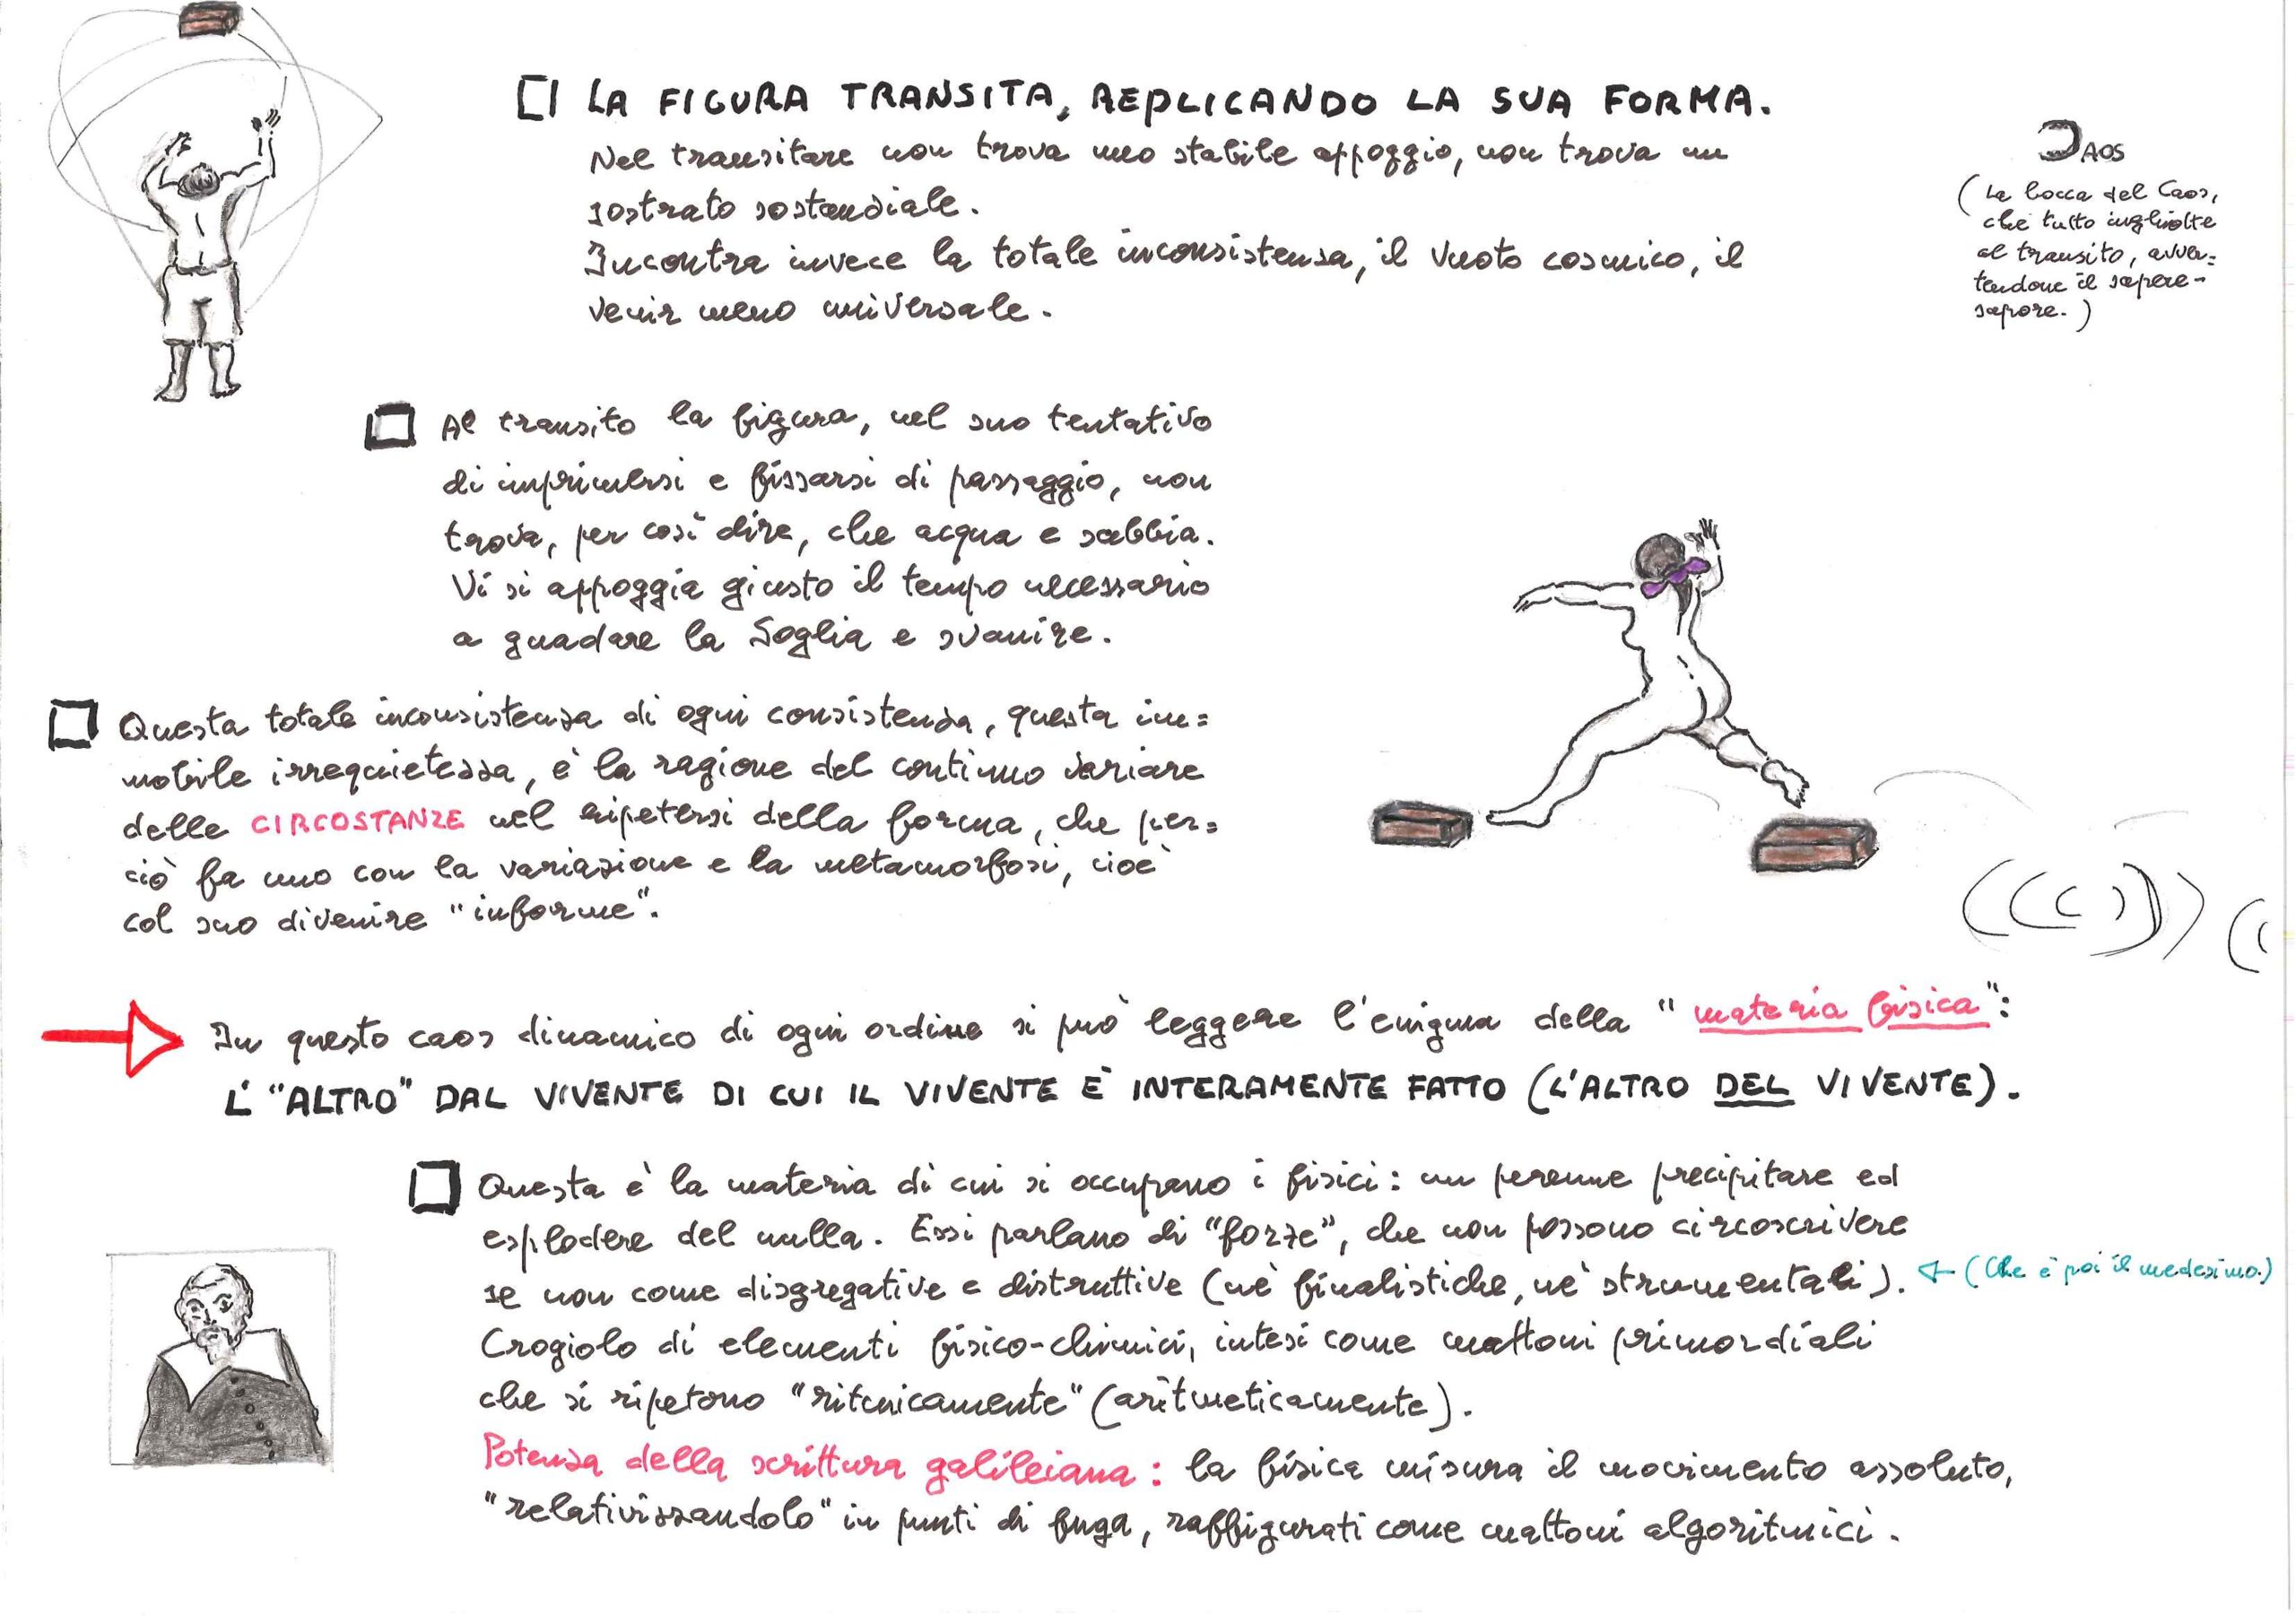 LA FIGURA TRANSITA, REPLICANDO LA SUA FORMA.
Nel transitare non trova uno stabile appoggio, non trova un
sostrato sostanziale.
Incontra invece la totale inconsistenza, il vuoto cosmico, il
venir meno universale.
CAOS
(La bocca del Caos,
che tutto inghiotte
al transito, avver=
tendone il sapere-
sapore.)
Al transito la figura, nel suo tentativo
di imprimersi e fissarsi di passaggio, non
trova, per così dire, che acqua e sabbia.
Vi si appoggia giusto il tempo necessario
a guadare la Soglia e svanire.
Questa totale inconsistenza di ogni consistenza, questa im=
mobile irrequietezza, è la ragione del continuo variare
delle CIRCOSTANZE nel ripetersi della forma, che per=
ciò fa uno con la variazione e la metamorfosi, cioè
col suo divenire "informe".
In questo caos dinamico di ogni ordine si può leggere l'enigma della "materia fisica":
L'"ALTRO" DAL VIVENTE DI CUI IL VIVENTE È INTERAMENTE FATTO (L'ALTRO DEL VIVENTE).
Questa è la materia di cui si occupano i fisici: un perenne precipitare ed
esplodere del nulla. Essi parlano di "forze", che non possono circoscrivere
se non come disgregative e distruttive (nè finalistiche, nè strumentali). ← (Che è poi il medesimo.)
Crogiolo di elementi fisico-chimici, intesi come mattoni primordiali
che si ripetono "ritmicamente" (aritmeticamente).
Potenza della scrittura galileiana: la fisica misura il movimento assoluto,
"relativizzandolo" in punti di fuga, raffigurati come mattoni algoritmici.